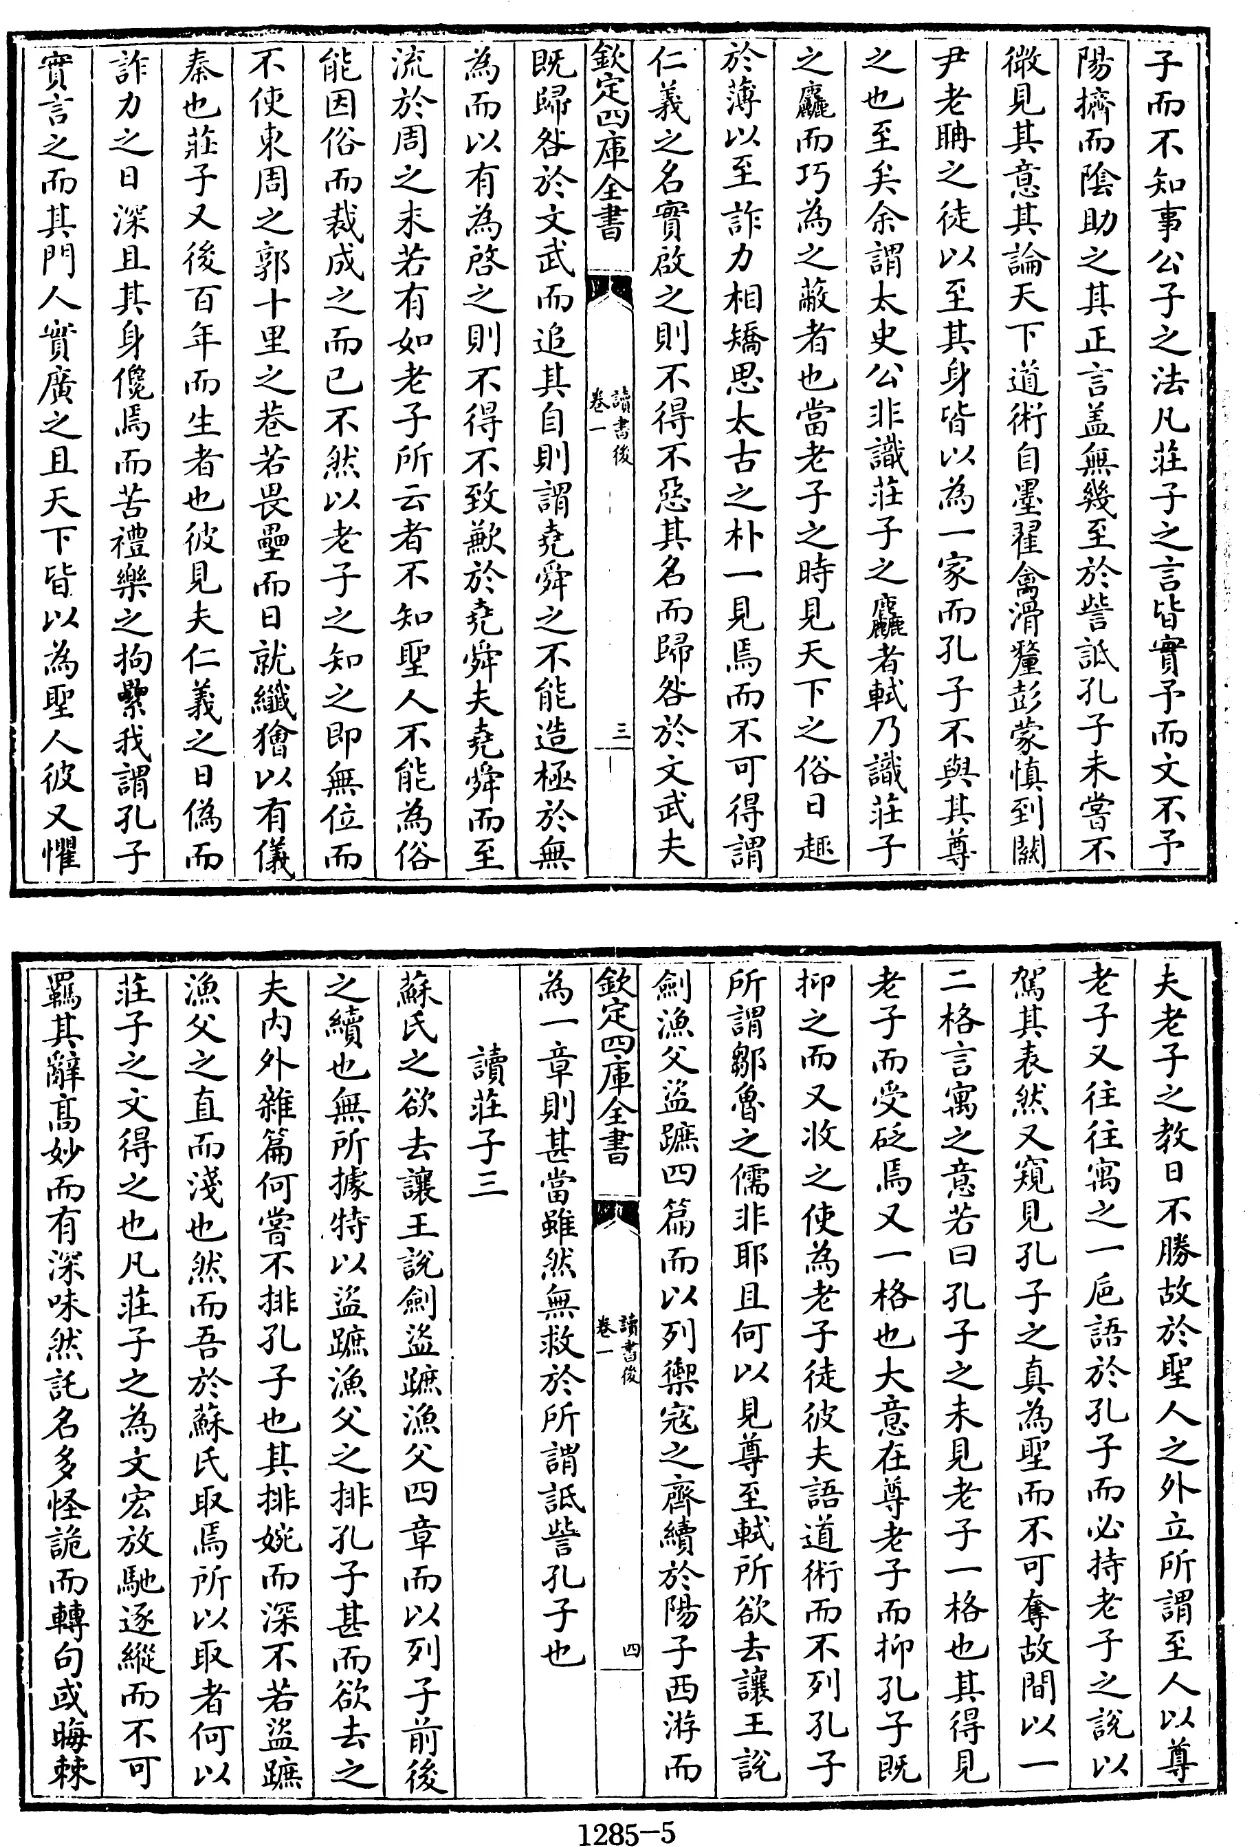 子而不知事公子之法凡莊子之言皆實予而文不予
陽擠而陰助之其正言蓋無幾至於訾詆孔子未嘗不
微見其意其論天下道術自墨翟禽滑釐彭蒙慎到關
尹老聃之徒以至其身皆以為一家而孔子不與其尊
之也至矣余謂太史公非識莊子之麤者軾乃識莊子
之麤而巧為之蔽者也當老子之時見天下之俗日趨
於薄以至詐力相矯思太古之朴一見焉而不可得謂
仁義之名實啟之則不得不惡其名而歸咎於文武夫
欽定四庫全書
讀書後
卷一
三
既歸咎於文武而追其自則謂堯舜之不能造極於無
為而以有為啓之則不得不致歉於堯舜夫堯舜而至
流於周之末若有如老子所云者不知聖人不能為俗
能因俗而裁成之而已不然以老子之知之即無位而
不使東周之郭十里之巷若畏壘而日就纖獪以有儀
秦也莊子又後百年而生者也彼見夫仁義之日偽而
詐力之日深且其身儳焉而苦禮樂之拘纍我謂孔子
實言之而其門人實廣之且天下皆以為聖人彼又懼
夫老子之教日不勝故於聖人之外立所謂至人以尊
老子又往往寓之一巵語於孔子而必持老子之說以
駕其表然又窺見孔子之真為聖而不可奪故間以一
二格言寓之意若曰孔子之未見老子一格也其得見
老子而受砭焉又一格也大意在尊老子而抑孔子既
抑之而又收之使為老子徒彼夫語道術而不列孔子
所謂鄒魯之儒非耶且何以見尊至軾所欲去讓王說
劍漁父盜蹠四篇而以列禦寇之齊續於陽子西游而
欽定四庫全書
讀書後
卷一
四
為一章則甚當雖然無救於所謂詆訾孔子也
讀莊子三
蘇氏之欲去讓王說劍盜蹠漁父四章而以列子前後
之續也無所據特以盜蹠漁父之排孔子甚而欲去之
夫內外雜篇何嘗不排孔子也其排婉而深不若盜蹠
漁父之直而淺也然而吾於蘇氏取焉所以取者何以
莊子之文得之也凡莊子之為文宏放馳逐縱而不可
羈其辭高妙而有深味然託名多怪詭而轉句或晦棘
1285-5